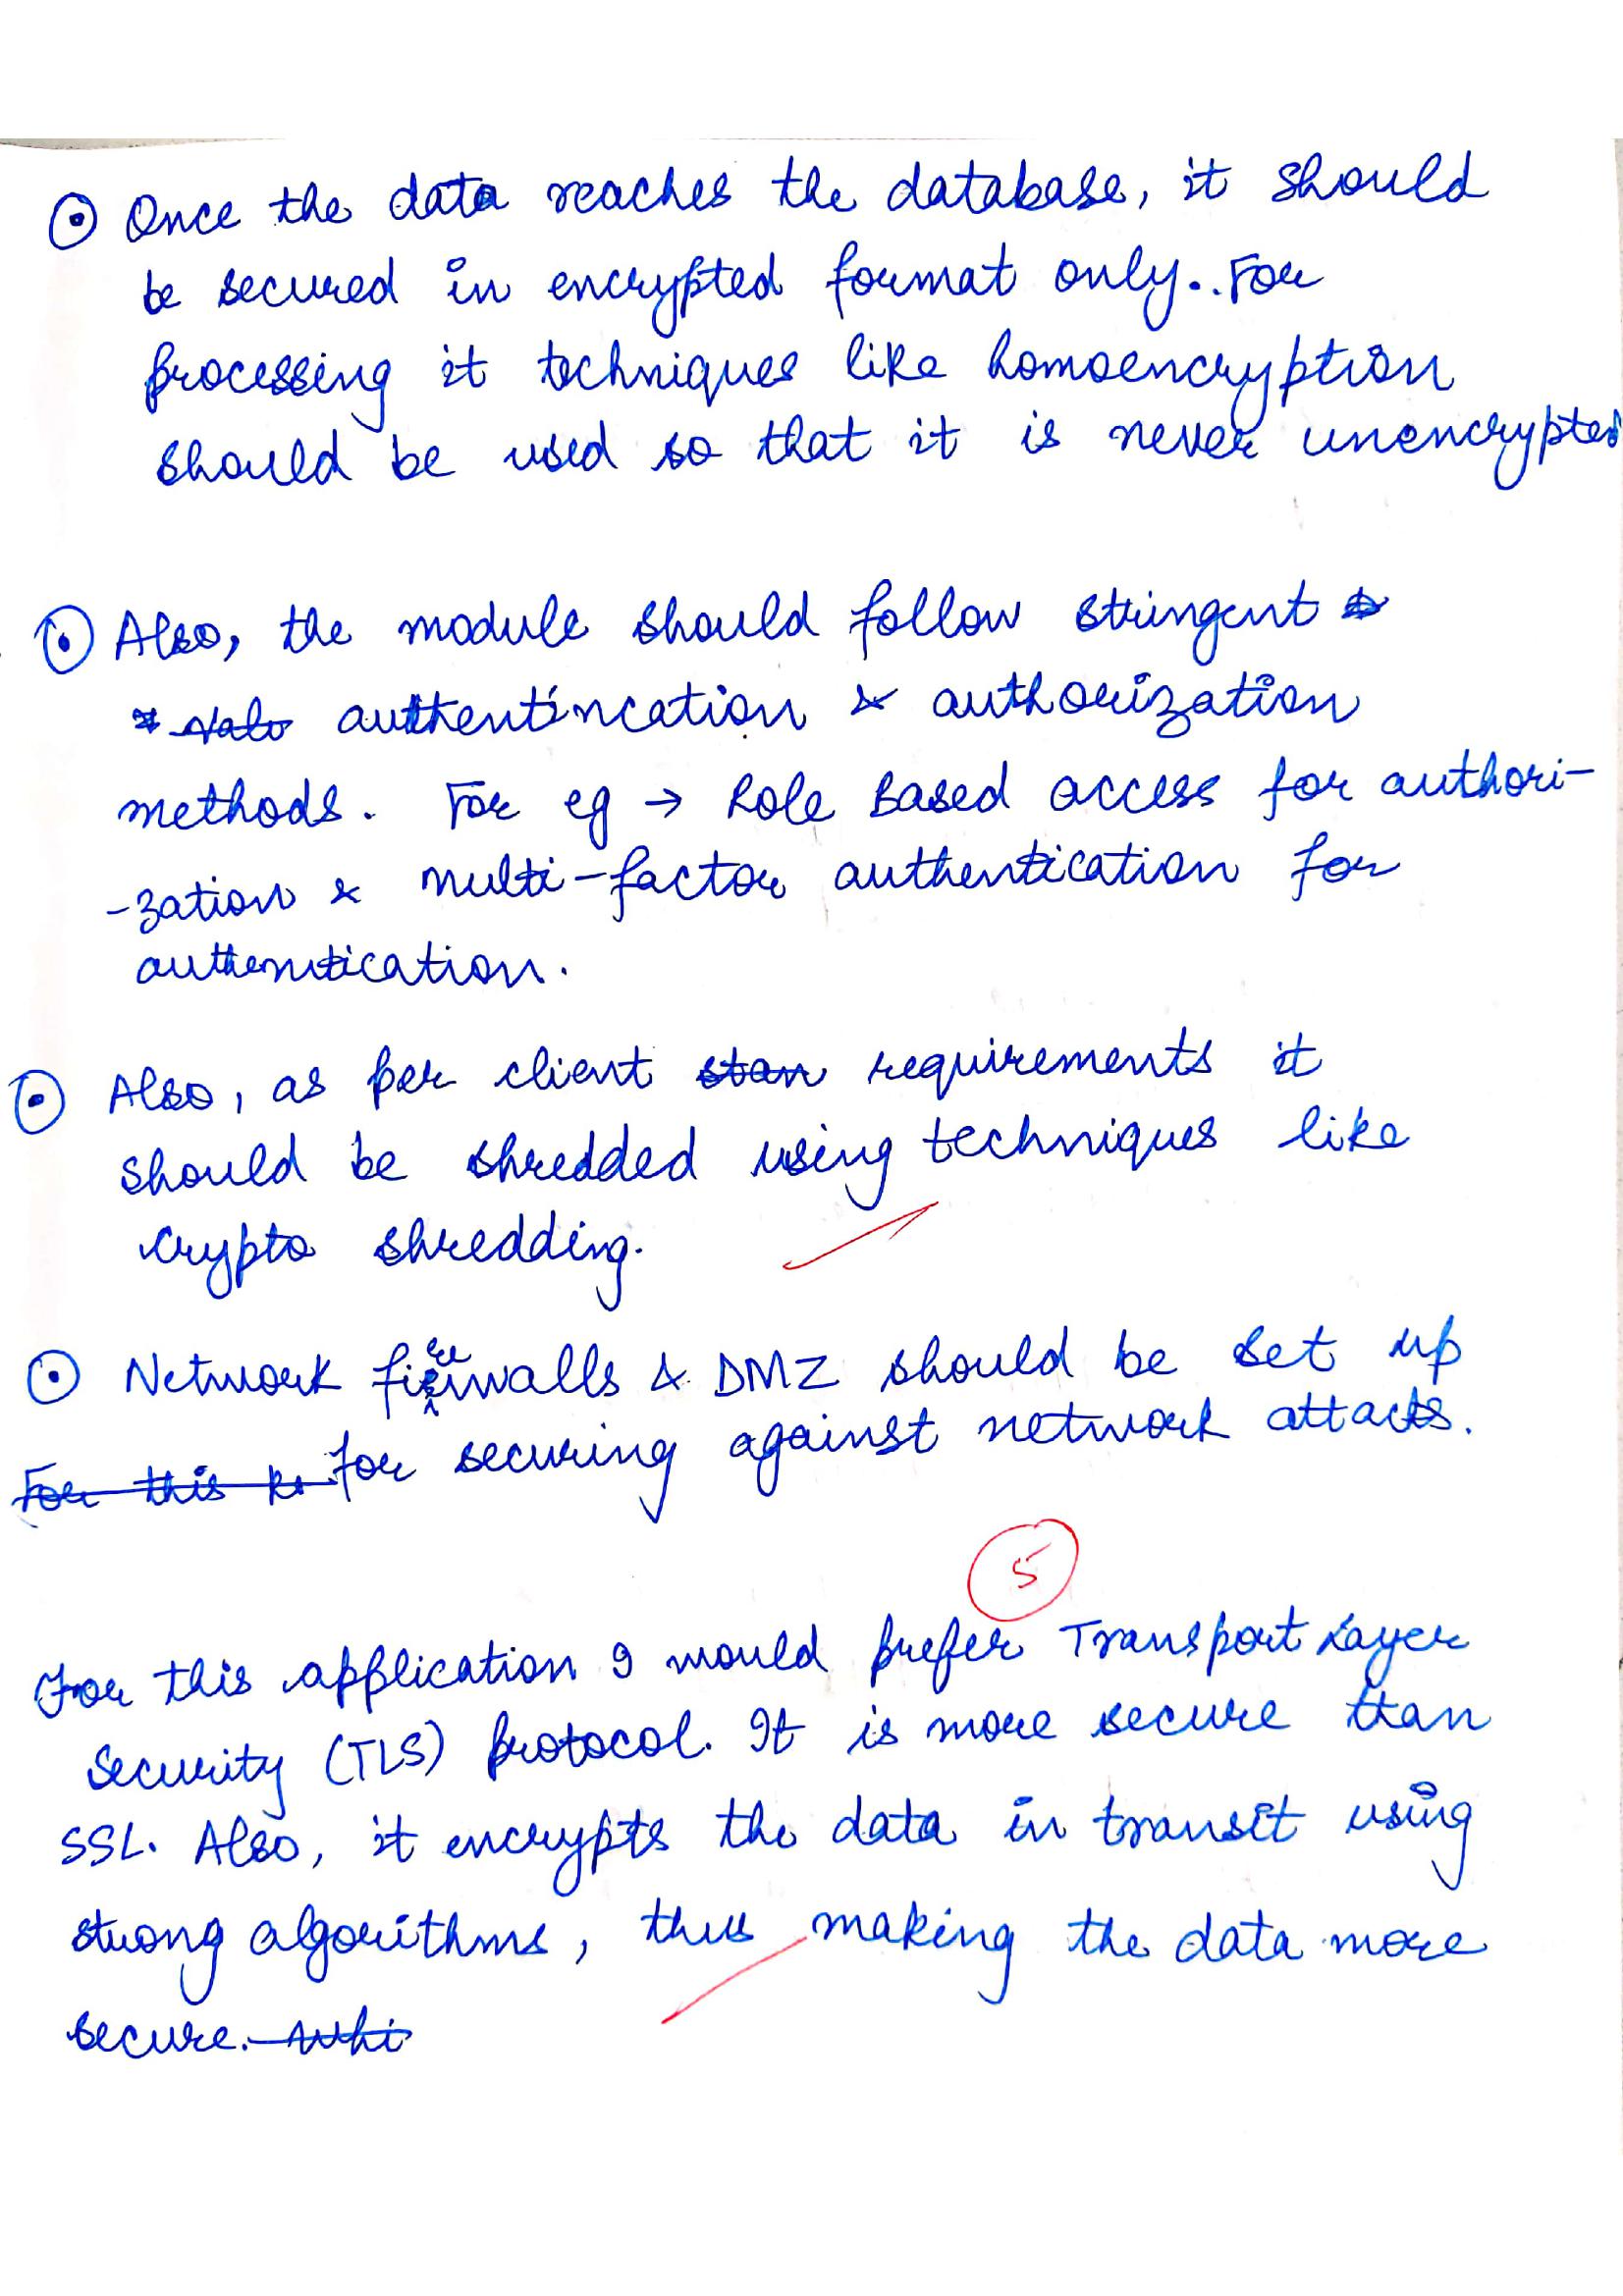 ⊙ Once the data reaches the database, it should
be secured in encrypted format only.. For
processing it techniques like homoencryption
should be used so that it is never unencrypted
⊙ Also, the module should follow stringent
authentincation & authorization
methods. For eg → Role Based access for authori-
-zation & multi-factor authentication for
authentication.
⊙ Also, as per client stan requirements it
should be shredded using techniques like
crypto shredding.
⊙ Network firewalls & DMZ should be set up
For this for securing against network attacks.
5
For this application I would prefer Transport Layer
Security (TLS) protocol. It is more secure than
SSL. Also, it encrypts the data in transit using
strong algorithms, thus making the data more
secure. whi